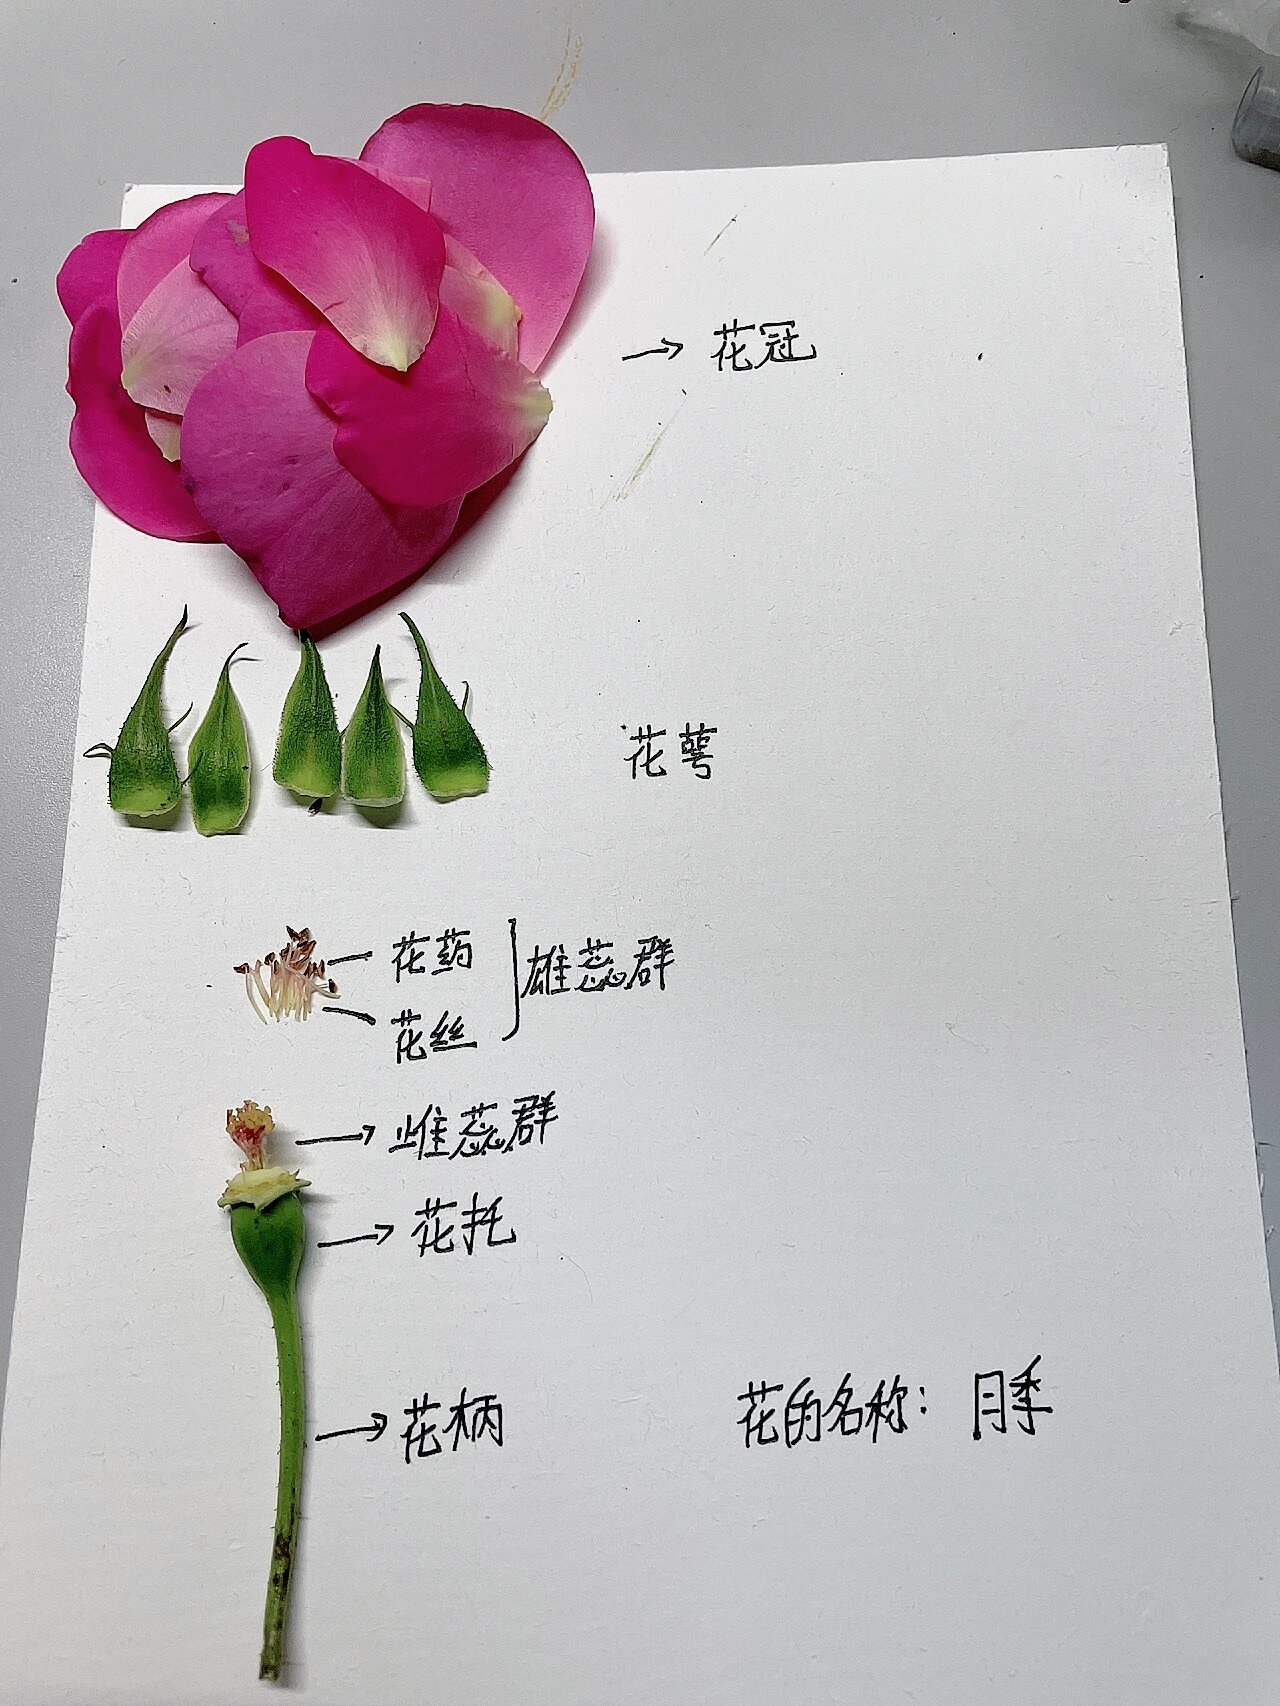 花冠
花萼
花药
雄蕊群
花丝
雌蕊群
花托
花柄
花的名称：月季